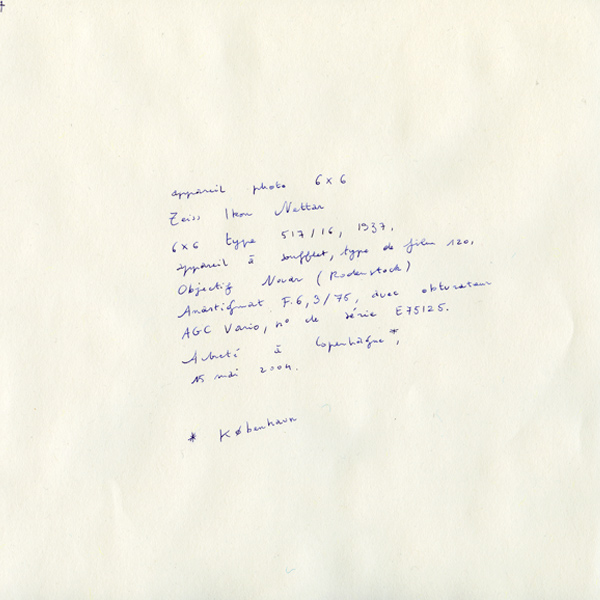 appareil photo 6x6
Zeiss Ikon Nettar
6x6 type 517/16, 1937.
appareil à soufflet, type de film 120,
Objectif Novar (Rodenstock)
Anastigmat F.6,3/75, avec obturateur
AGC Vario, n° de série E75125.
Acheté à Copenhague*,
15 mai 2004.
* København